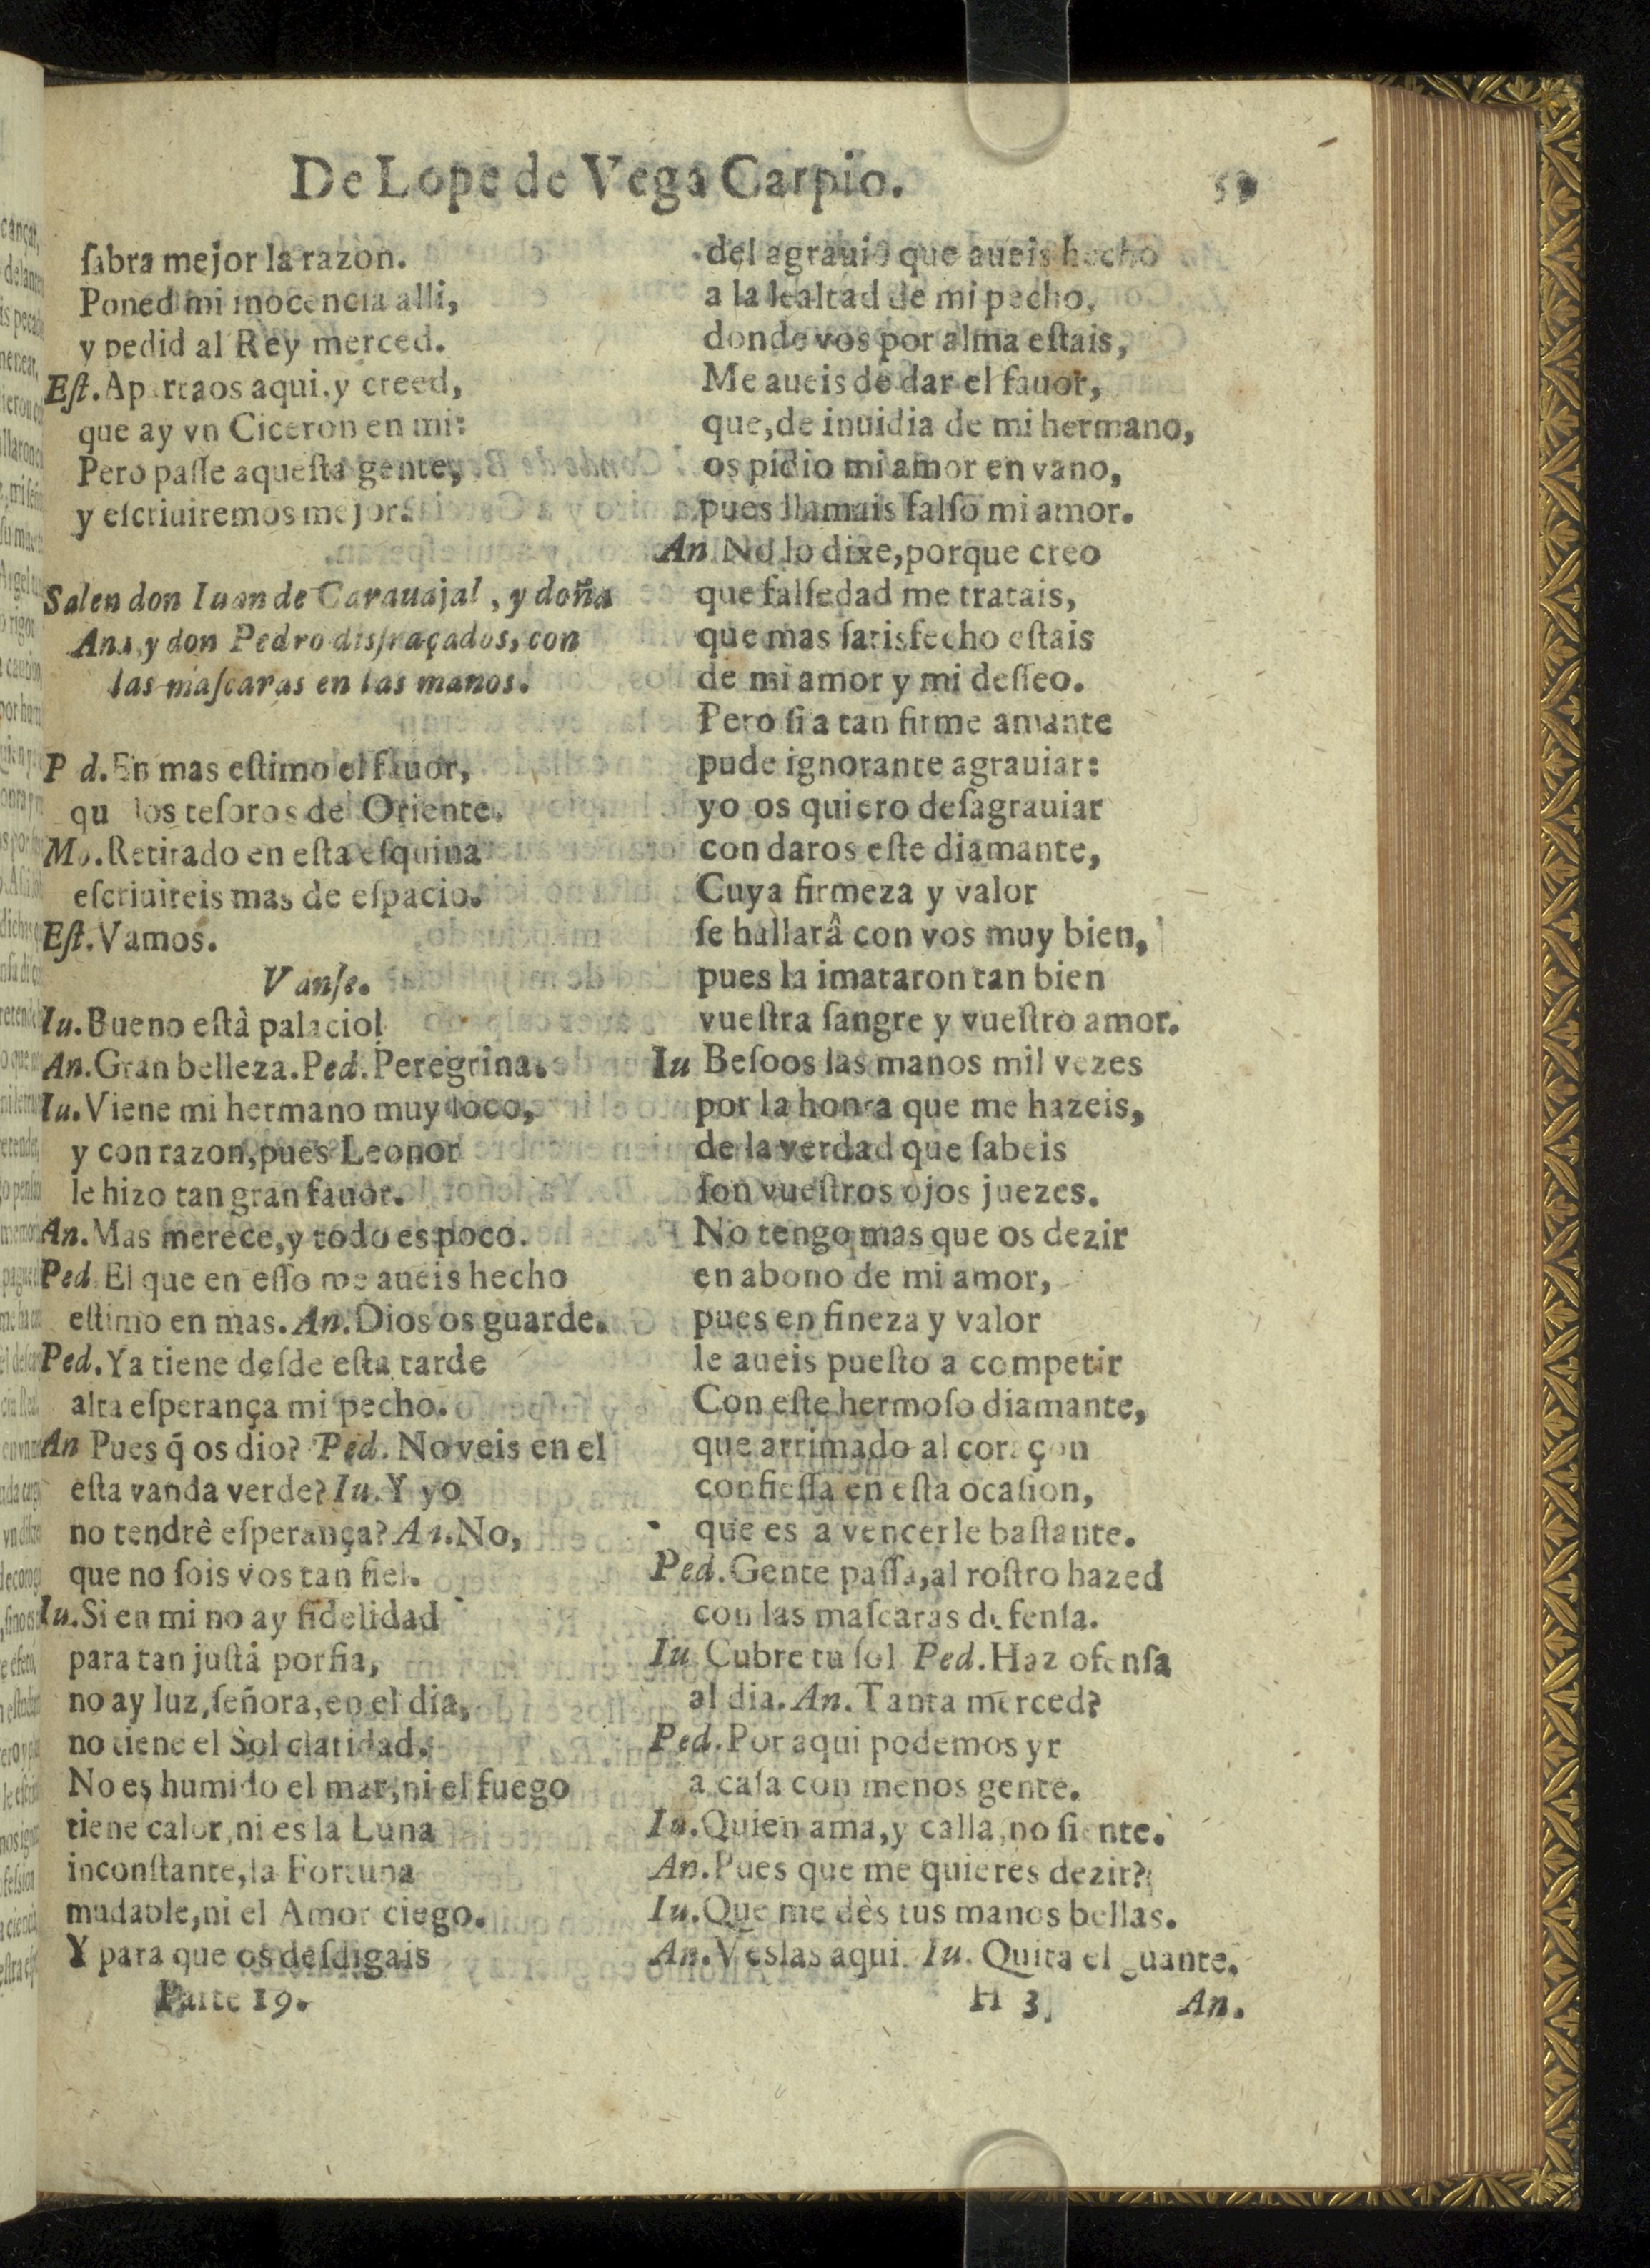 De Lope de Vega Carpio.
59
ſabra mejor la razon.
Poned mi inocencia alli,
y pedid al Rey merced.
Eſt. Apartaos aqui, y creed,
que ay vn Ciceron en mi:
Pero paſſe aqueſta gente,
y eſcriuiremos mejor.
Salen don Iuan de Carauajal, y doña
Ana, y don Pedro disfraçados, con
las maſcaras en las manos.
Ped. En mas eſtimo el fauor,
que los teſoros de Oriente.
Mo. Retirado en eſta eſquina
eſcriuireis mas de eſpacio.
Eſt. Vamos.
Vanſe.
Iu. Bueno eſtà palacio!
An. Gran belleza. Ped. Peregrina.
Iu. Viene mi hermano muy loco,
y con razon, pues Leonor
le hizo tan gran fauor.
An. Mas merece, y todo es poco.
Ped. El que en eſſo me aueis hecho
eſtimo en mas. An. Dios os guarde.
Ped. Ya tiene deſde eſta tarde
alta eſperança mi pecho.
An Pues q̃ os dio? Ped. No veis en el
eſta vanda verde? Iu. Y yo
no tendrè eſperança? An. No,
que no ſois vos tan fiel.
Iu. Si en mi no ay fidelidad
para tan juſta porfia,
no ay luz, ſeñora, en el dia,
no tiene el Sol claridad.
No es humido el mar, ni el fuego
tiene calor, ni es la Luna
inconſtante, la Fortuna
mudable, ni el Amor ciego.
Y para que os deſdigais
Parte 19.
del agrauio que aueis hecho
a la lealtad de mi pecho,
donde vos por alma eſtais,
Me aueis de dar el fauor,
que, de inuidia de mi hermano,
os pidio mi amor en vano,
pues llamais falſo mi amor.
An No lo dixe, porque creo
que falſedad me tratais,
que mas ſatisfecho eſtais
de mi amor y mi deſſeo.
Pero ſi a tan firme amante
pude ignorante agrauiar:
yo os quiero deſagrauiar
con daros eſte diamante,
Cuya firmeza y valor
ſe hallarâ con vos muy bien,
pues la imataron tan bien
vueſtra ſangre y vueſtro amor.
Iu Beſoos las manos mil vezes
por la honra que me hazeis,
de la verdad que ſabeis
ſon vueſtros ojos juezes.
No tengo mas que os dezir
en abono de mi amor,
pues en fineza y valor
le aueis pueſto a competir
Con eſte hermoſo diamante,
que arrimado al coraçon
confieſſa en eſta ocaſion,
que es a vencerle baſtante.
Ped. Gente paſſa, al roſtro hazed
con las maſcaras defenſa.
Iu Cubre tu ſol Ped. Haz ofenſa
al dia. An. Tanta merced?
Ped. Por aqui podemos yr
a caſa con menos gente.
Iu. Quien ama, y calla, no ſiente.
An. Pues que me quieres dezir?
Iu. Que me dès tus manos bellas.
An. Veslas aqui. Iu. Quita el guante.
H 3
An.